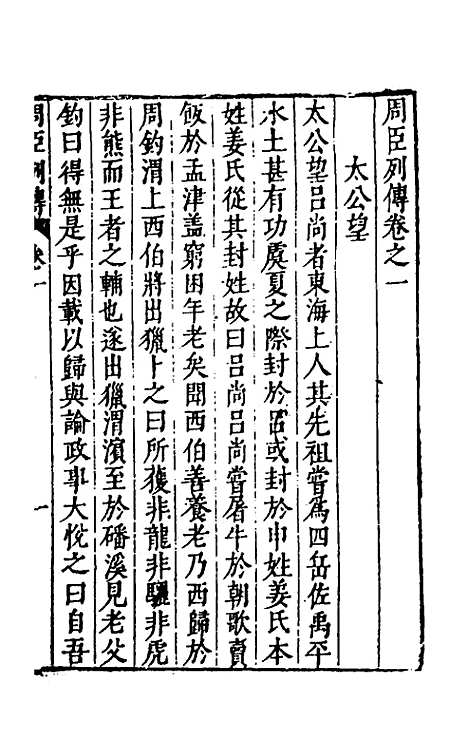 周臣列傳卷之一
太公望
太公望吕尚者東海上人其先祖嘗為四岳佐禹平
水土甚有功虞夏之際封於吕或封於申姓姜氏本
姓姜氏從其封姓故曰吕尚吕尚嘗屠牛於朝歌賣
飯於孟津蓋窮困年老矣聞西伯善養老乃西歸於
周釣渭上西伯將出獵卜之曰所獲非龍非驪非虎
非熊而王者之輔也遂出獵渭濱至於磻溪見老父
釣曰得無是乎因載以歸與論政事大悅之曰自吾
周臣列傳 卷一 一